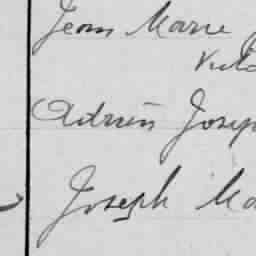 Jean Marie
Adrien Joseph
Joseph Ma